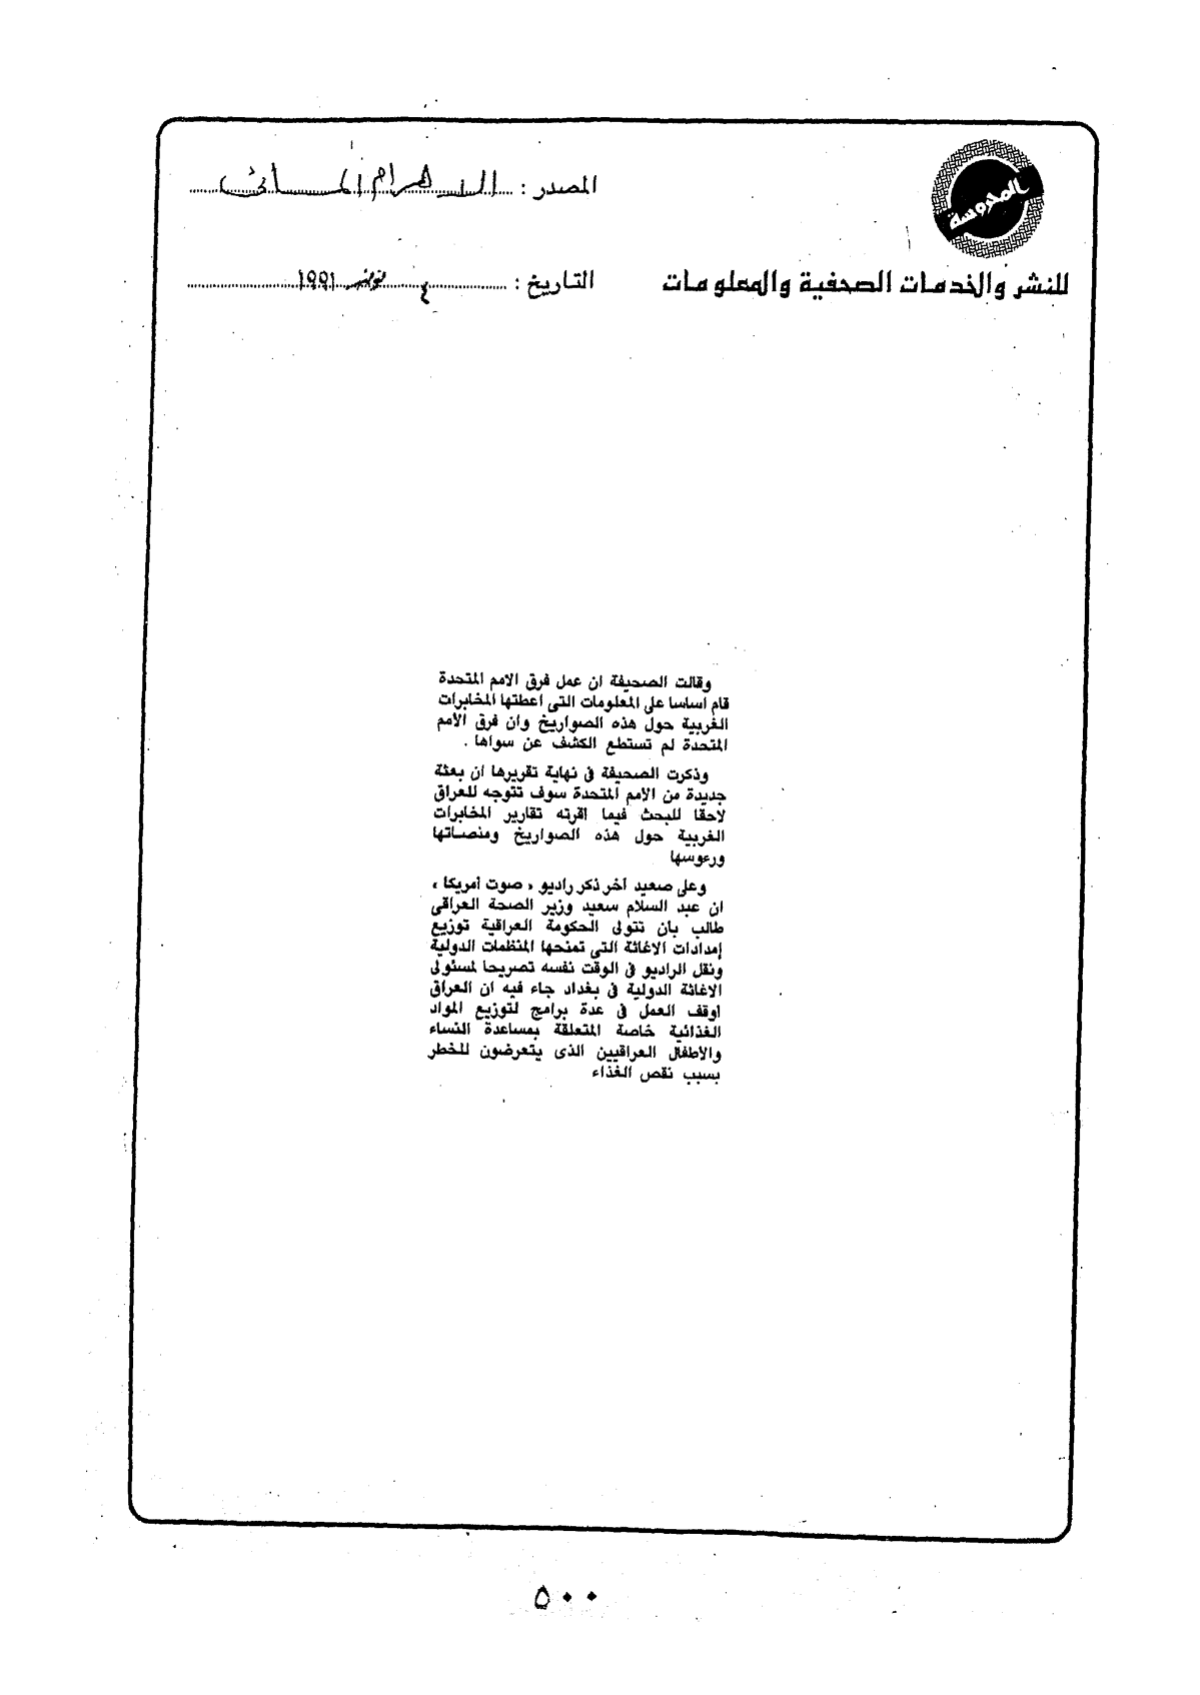 المحروسة
للنشر والخدمات الصحفية والمعلومات
المصدر : الاهرام المسائى
التاريخ : ٤ نوفمبر ١٩٩١
وقالت الصحيفة ان عمل فرق الامم المتحدة
قام اساسا على المعلومات التى اعطتها المخابرات
الغربية حول هذه الصواريخ وان فرق الأمم
المتحدة لم تستطع الكشف عن سواها .
وذكرت الصحيفة فى نهاية تقريرها ان بعثة
جديدة من الامم المتحدة سوف تتوجه للعراق
لاحقا للبحث فيما اقرته تقارير المخابرات
الغربية حول هذه الصواريخ ومنصاتها
ورءوسها
وعلى صعيد آخر ذكر راديو « صوت أمريكا »
ان عبد السلام سعيد وزير الصحة العراقى
طالب بان تتولى الحكومة العراقية توزيع
إمدادات الاغاثة التى تمنحها المنظمات الدولية
ونقل الراديو فى الوقت نفسه تصريحا لمسئولى
الاغاثة الدولية فى بغداد جاء فيه ان العراق
اوقف العمل فى عدة برامج لتوزيع المواد
الغذائية خاصة المتعلقة بمساعدة النساء
والاطفال العراقيين الذى يتعرضون للخطر
بسبب نقص الغذاء
٥٠٠